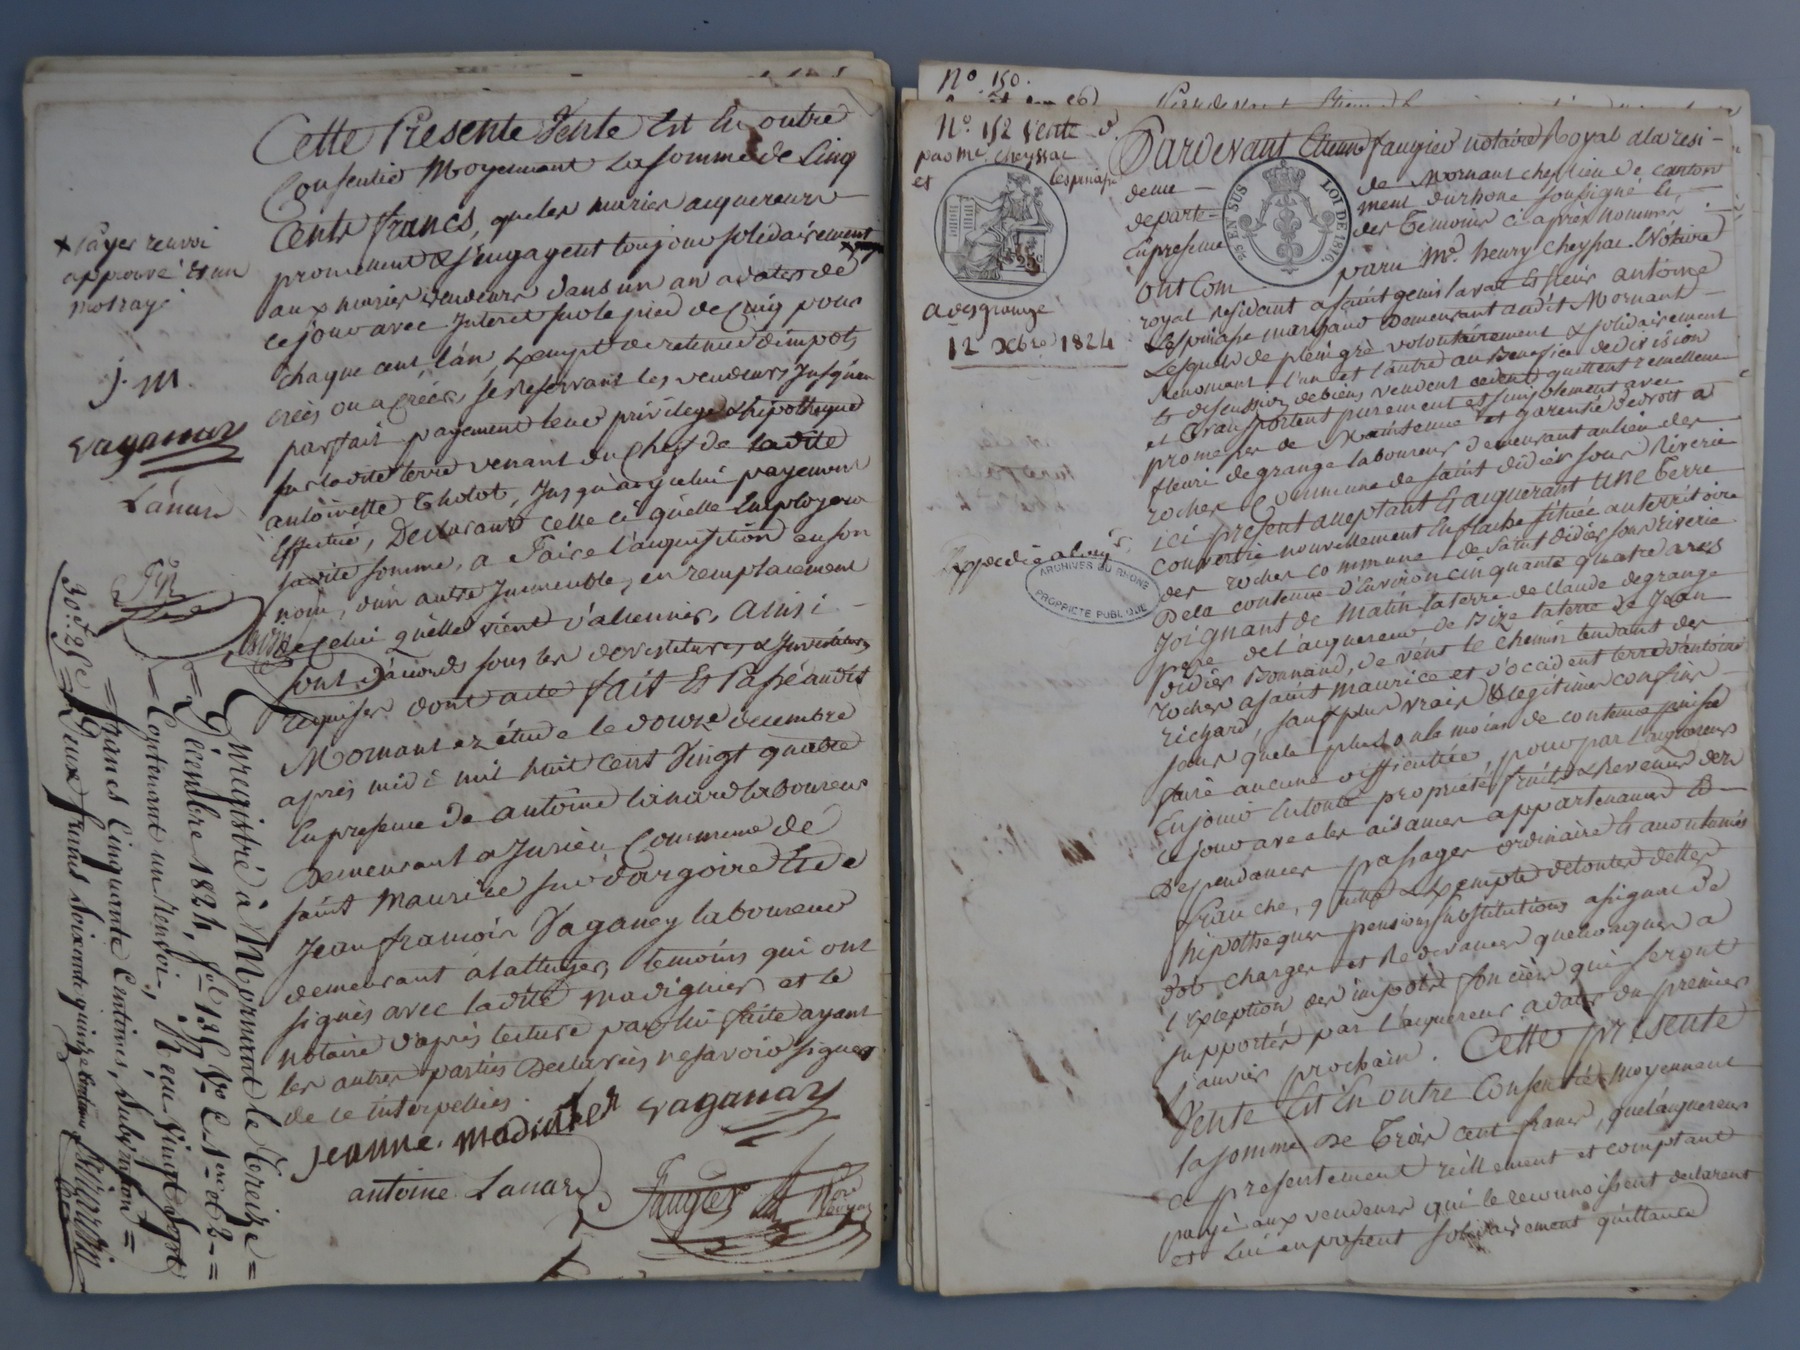 Cette Presente Vente Est En outre
Consentie Moyennant la somme de Cinq
Cents francs, que les mariés acquereurs
promettent & s'engagent toujours solidairement
aux mariés vendeurs dans un an a dater de
ce jour avec Interet sur le pied de Cinq pour
chaque cent, l'an, Exempt de retenue d'impots
créés ou a créér, se reservant les vendeurs Jusqu'au
parfait payement leur privilege & hipotheque
sur ladite terre venant du chef de ladite
antoinette Tholot, Jusqu'a icelui payement
Effectué, Declarant celle ci qu'elle Employera
ladite somme, a faire l'acquisition en son
nom, d'un autre Immeuble, en remplacement
de Celui qu'elle vient d'aliener, Ainsi
sont d'accords sous les devestitures & Investitures
requises dont acte fait Et Passé audit
Mornant ez étude le douze decembre
après midi mil huit cent Vingt quatre
En presence de antoine lanard laboureur
Demeurant a Jurieu Commune de
saint Maurice sur dargoire Et de
Jean francois Vaganay laboureur
demeurant a la , temoins qui ont
signés avec ladite madignier et le
notaire d'après lecture par lui faite ayant
les autres parties Declarées ne savoir signer
de ce interpellées.
jeanne. madinier vaganay
antoine Lanard
Faugier Nore royal
x rayer renvoi
approuvé Et un
mot rayé
j. m
vaganay
Lanard
Enregistré à Mornant le treize =
= Décembre 1824, fol 136 Vo C. 1ere et 2 =
= Contenant un Renvoi, Reçu vingt sept
= francs Cinquante Centimes, subvention =
= Deux francs soixante quinze Centimes
30f. 25c
No. 150.
No. 152 Vente
par Me. Cheyssac
et lespinasse
a desgrange
12 Xbre 1824
Expedié a
ARCHIVES DU RHONE
PROPRIETE PUBLIQUE
25c EN SUS
LOI DE 1816
Pardevant Etienne faugier notaire Royal a la resi-
dence de Mornant chef lieu de canton
departe- ment du rhone soussigné Et,
En presence des Temoins ci après nommés
ont com- paru Me. henry cheyssac Notaire
royal residant a saint genis laval Et sieur antoine
Lespinasse marchand Demeurant audit Mornant
Lesquels de plein gré volontairement & solidairement
Renonçant l'un et l'autre au Benefice de division
Et discussion de biens vendent cedent quittent remettent
et Transportent purement et simplement avec
promesse de Maintenue et garentie de droit a
fleuri degrange laboureur demeurant au lieu des
roches Commune de saint didier sous Riverie
ici present acceptant Et acquerant Une terre
convertie nouvellement En flache située au territoire
des roches commune de saint didier sous riverie
De la contenue d'Environ cinquante quatre ares
Joignant de Matin la terre de Claude degrange
pere de l'acquereur, de Bize la terre de Jean
didier Bonnand, de vent le Chemin tendant des
roches a saint Maurice et d'occident terre d'antoine
richard, sauf plus vrais & legitimes confins
sans que le plus ou le moins de contenue puisse
faire aucune difficultée, pour par l'acquereur
En jouir En toute propriété, fruits & Revenus des
ce jour avec les aisances appartenances Et
Dependances passages ordinaire Et accoutumés
franche, quitte & Exempte de toutes dettes
hipotheques pensions, substitutions assignat de
dot charges et Redevances quelconques a
l'exception des impots fonciers qui seront
supportés par l'acquereur a dater du premier
janvier prochain. Cette presente
Vente Est En outre Consentie Moyennant
la somme De Trois cent francs, que l'acquereur
a presentement réellement et comptant
payé aux vendeurs qui le reconnoissent declarent
et lui en passent solidairement quittance